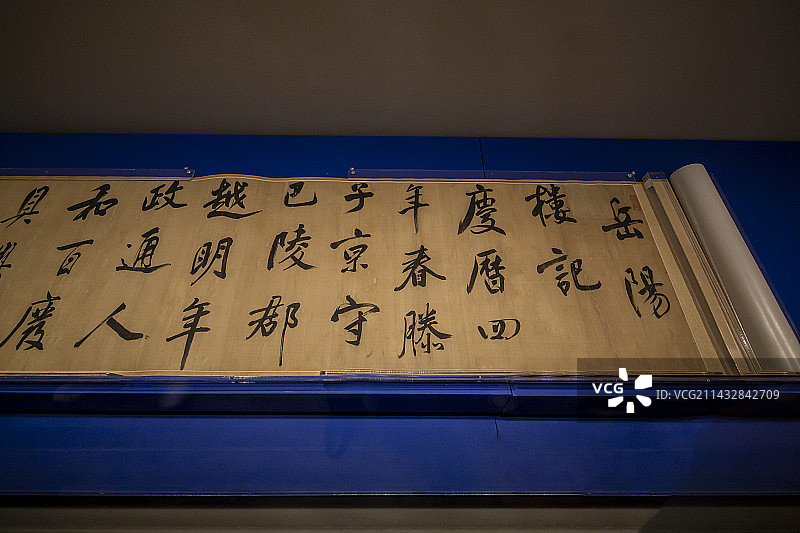 岳陽
樓記
慶曆四
年春滕
子京守
巴陵郡
越明年
政通人
和百廢
具
VCG
VCG211432842709